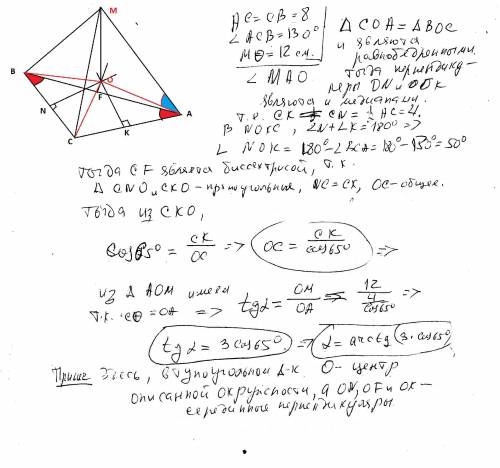 M
B
O
N
F
A
C
K
AC = CB = 8
∠ACB = 130°
MO = 12 см.
∠ MAO
Δ COA = Δ BOC
и являются
равнобедренными
тогда перпендику-
ляры ON и OK
являются и медианами.
т.е. CK = CN = ½ AC = 4.
В NOKC, ∠N+∠K = 180° =>
∠ NOK = 180° - ∠BCA = 180° - 130° = 50°
тогда CF является биссектрисой, т.к.
Δ CNO и CKO - прямоугольные, NC = CK, OC - общее.
тогда из CKO,
cos 65° = CK/OC => OC = CK/cos65° =>
из Δ AOM имеем
т.к. CO = OA => tg α = OM/OA = 12/(4/cos65°) =>
tg α = 3 cos 65° => α = arctg (3·cos65°)
Здесь, в тупоугольном Δ-к. O - центр
описанной окружности, а ON, OF и OK -
серединные перпендикуляры